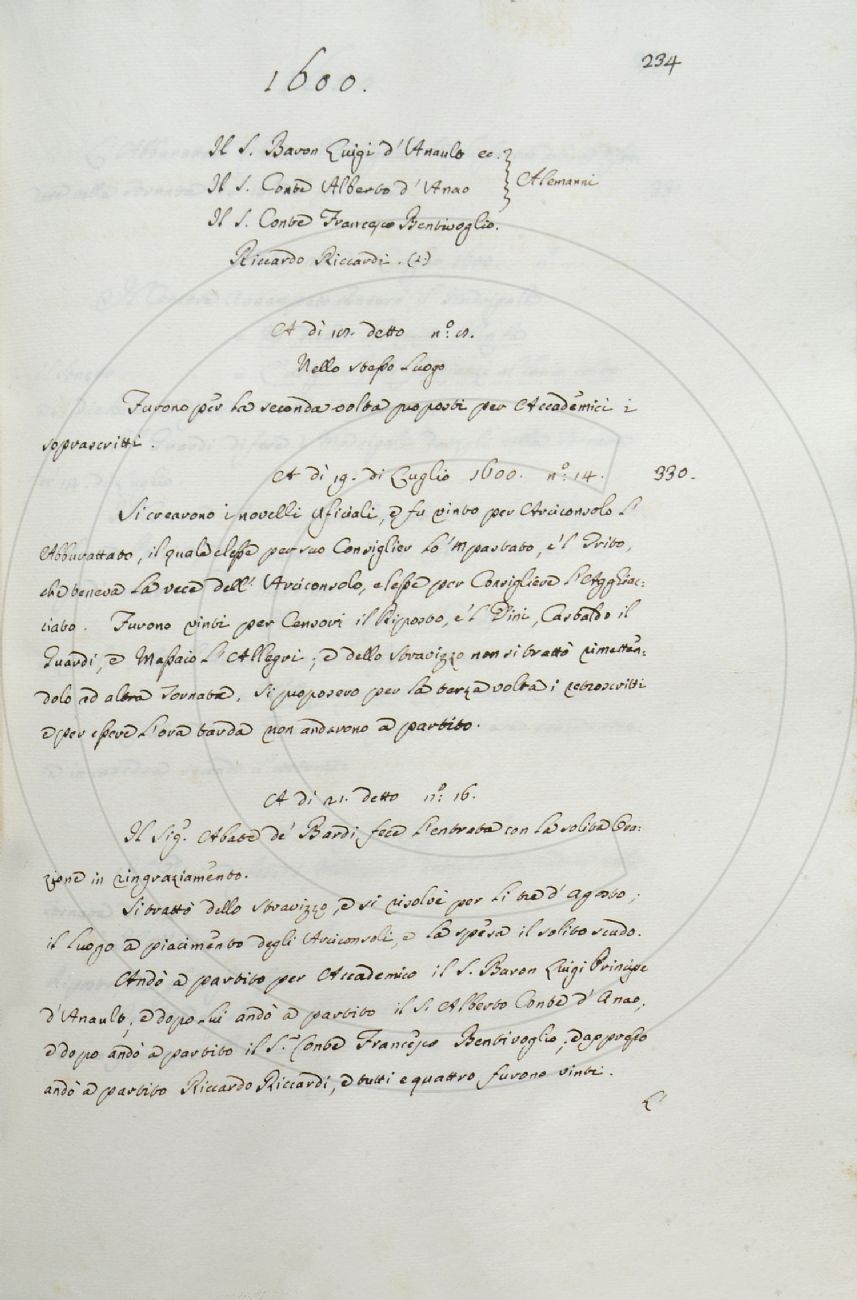 234
1600.
Il S. Baron Luigi d'Anault ec.
Il S. Conte Alberto d'Anao } Alemanni
Il S. Conte Francesco Bentivoglio.
Riccardo Riccardi. (2)
A dì detto n.º
Nello stesso Luogo
Furono per la seconda volta proposti per Accademici i
soprascritti.
A dì 19. di Luglio 1600. n.º 14. 330.
Si crearono i novelli Uficiali, e fu vinto per Arciconsolo l'
Abburattato, il quale elesse per suo Consiglier lo 'mpastato, e 'l Trito,
che teneva la vece dell' Arciconsolo, elesse per Consigliere l'Agghiac:
ciato. Furono vinti per Censori il Riposto, e 'l Dini, Castaldo il
Guardi, e Massaio l'Allegri; e dello stravizzo non si trattò rimetten:
dolo ad altra Tornata. Si proposero per la terza volta i retroscritti
e per essere l'ora tarda non andarono a partito.
A dì 21. detto n.º 16.
Il Sig.r Abate de' Bardi fece l'entrata con la solita Ora:
zione in ringraziamento.
Si trattò dello stravizzo, e si risolvè per li tre d'agosto;
il luogo a piacimento degli Arciconsoli, e la spesa il solito scudo.
Andò a partito per Accademico il S. Baron Luigi Principe
d'Anault, e dopo lui andò a partito il S. Alberto Conte d'Anao;
e dopo andò a partito il S.r Conte Francesco Bentivoglio; e appresso
andò a partito Riccardo Riccardi, e tutti e quattro furono vinti.